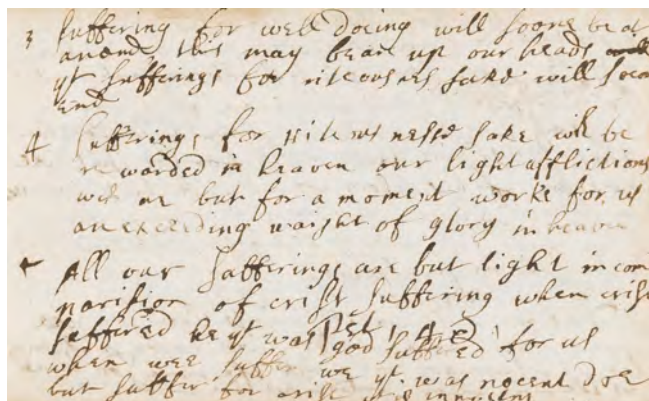 3 suffering for well doing will soone be at
an end this may bear up our heads
yt sufferings for riteousnes sake will soon
end
4 Sufferings for riteousnesse sake will be
rewarded in heaven our light afflictions
wch are but for a moment works for us
an exceeding waight of glory in heaven
All our sufferings are but light in com
parision of crist suffering when crist
suffered he yt was god suffered for us
when wee suffer we yt was nocent doe
but suffer for crist innocent